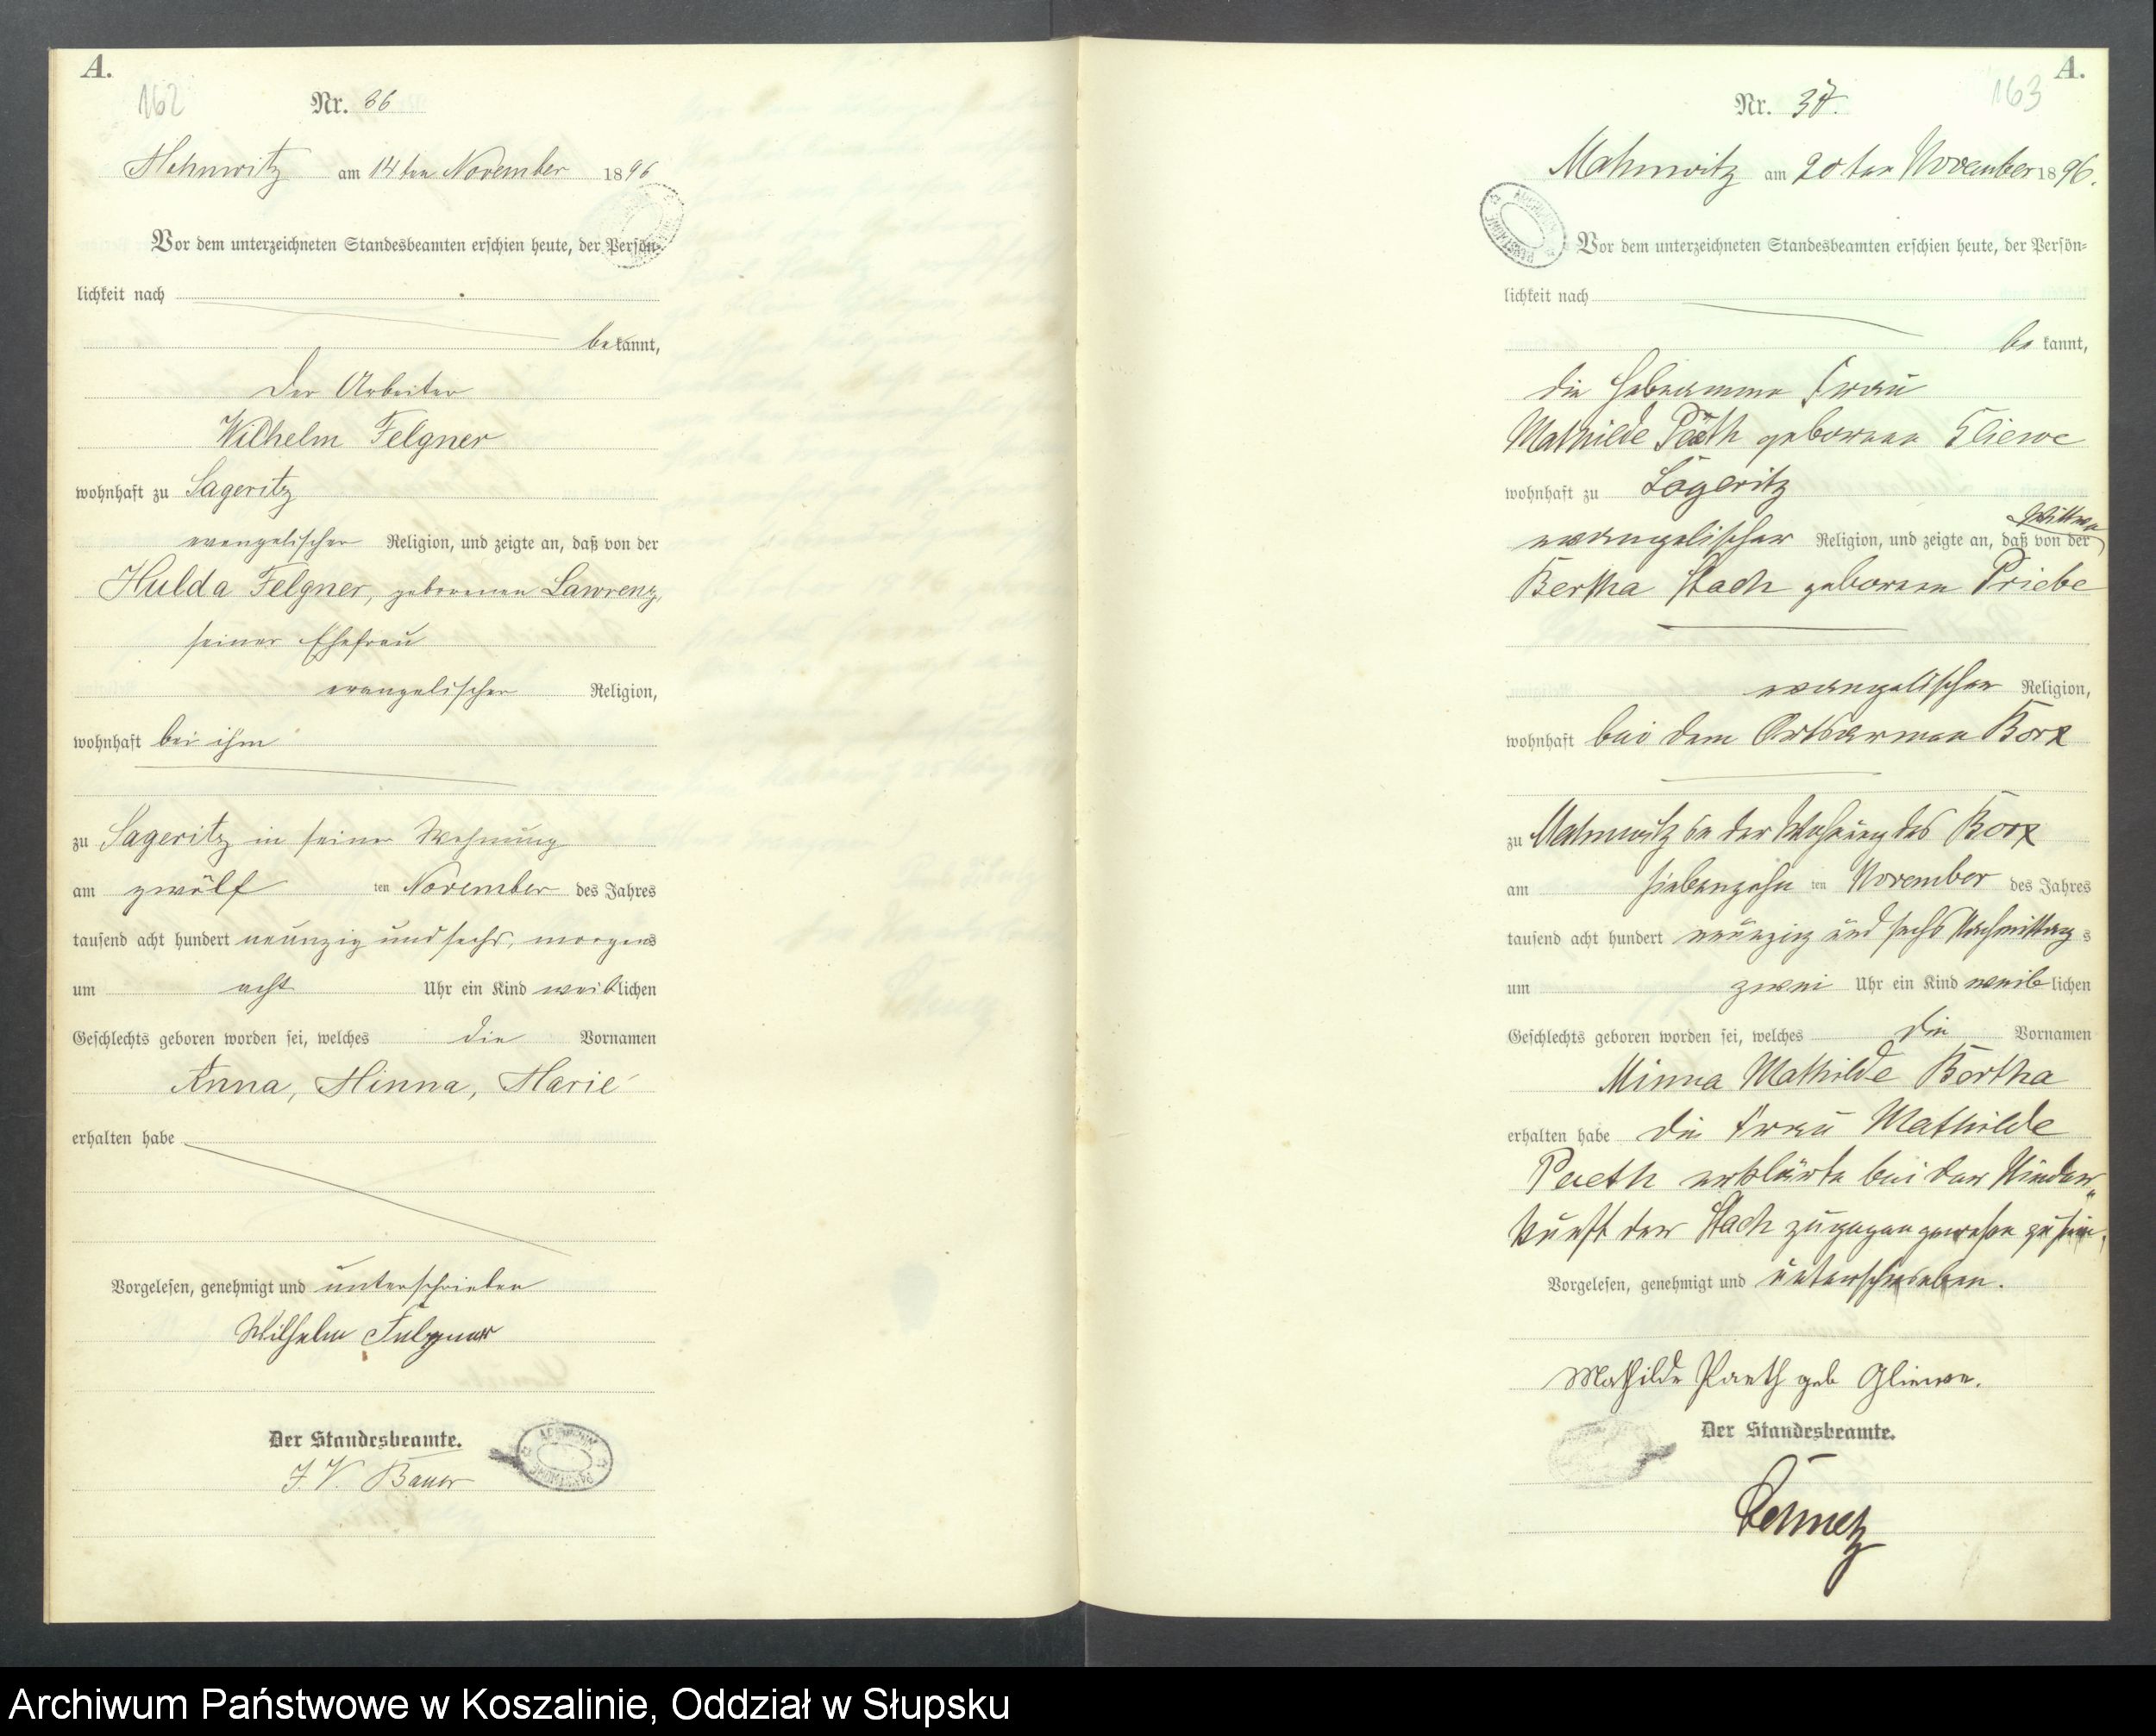 A.
162
Nr. 36
Mahnwitz am 14ten November 1896
Vor dem unterzeichneten Standesbeamten erschien heute, der Persön-
lichkeit nach
bekannt,
der Arbeiter
Wilhelm Felgner
wohnhaft zu Sageritz
evangelischer Religion, und zeigte an, daß von der
Hulda Felgner, geborenen Lawrenz,
seiner Ehefrau
evangelischer Religion,
wohnhaft bei ihm
zu Sageritz in seiner Wohnung
am zwölf ten November des Jahres
tausend acht hundert neunzig und sechs, morgens
um acht Uhr ein Kind weiblichen
Geschlechts geboren worden sei, welches die Vornamen
Anna, Minna, Marie
erhalten habe
Vorgelesen, genehmigt und unterschrieben
Wilhelm Felgner
Der Standesbeamte.
J. V. Bauer
A.
163
Nr. 37.
Mahnwitz am 20ten November 1896.
Vor dem unterzeichneten Standesbeamten erschien heute, der Persön-
lichkeit nach
be kannt,
die Hebeamme Frau
Mathilde Päeth geborene Gliewe
wohnhaft zu Sageritz
evangelischer Religion, und zeigte an, daß von der Wittwe
Bertha Stach geborene Priebe
evangelischer Religion,
wohnhaft bei dem Ortsarmen Bork
zu Mahnwitz in der Wohnung des Bork
am siebenzehn ten November des Jahres
tausend acht hundert neunzig und sechs Nachmittag s
um zwei Uhr ein Kind weiblichen
Geschlechts geboren worden sei, welches die Vornamen
Minna Mathilde Bertha
erhalten habe die Frau Mathilde
Paeth erklärte bei der Nieder„
kunft der Stach zugegen gewesen zu sein.
Vorgelesen, genehmigt und unterschrieben.
Mathilde Paeth geb Gliewe.
Der Standesbeamte.
Archiwum Państwowe w Koszalinie, Oddział w Słupsku